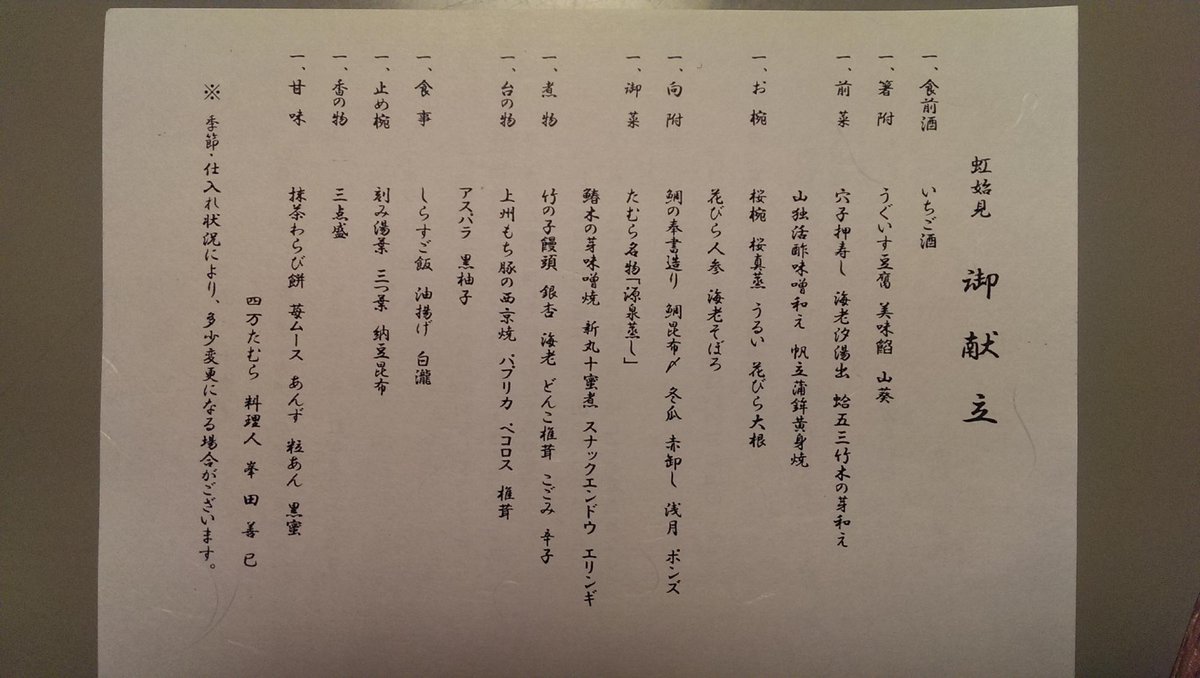 虹始見　御献立
一、食前酒　いちご酒
一、箸附　うぐいす豆腐　美味餡　山葵
一、前菜　穴子押寿し　海老汐湯出　蛤五三竹木の芽和え
山独活酢味噌和え　帆立蒲鉾黄身焼
一、お椀　桜椀　桜真蒸　うるい　花びら大根
花びら人参　海老そぼろ
一、向附　鯛の奉書造り　鯛昆布〆　冬瓜　赤卸し　浅月　ポンズ
一、御菜　たむら名物「源泉蒸し」
鰆木の芽味噌焼　新丸十蜜煮　スナックエンドウ　エリンギ
一、煮物　竹の子饅頭　銀杏　海老　どんこ椎茸　こごみ　辛子
一、台の物　上州もち豚の西京焼　パプリカ　ペコロス　椎茸
アスパラ　黒柚子
一、食事　しらすご飯　油揚げ　白瀧
一、止め椀　刻み湯葉　三つ葉　納豆昆布
一、香の物　三点盛
一、甘味　抹茶わらび餅　苺ムース　あんず　粒あん　黒蜜
四万たむら　料理人　峯田善巳
※　季節・仕入れ状況により、多少変更になる場合がございます。